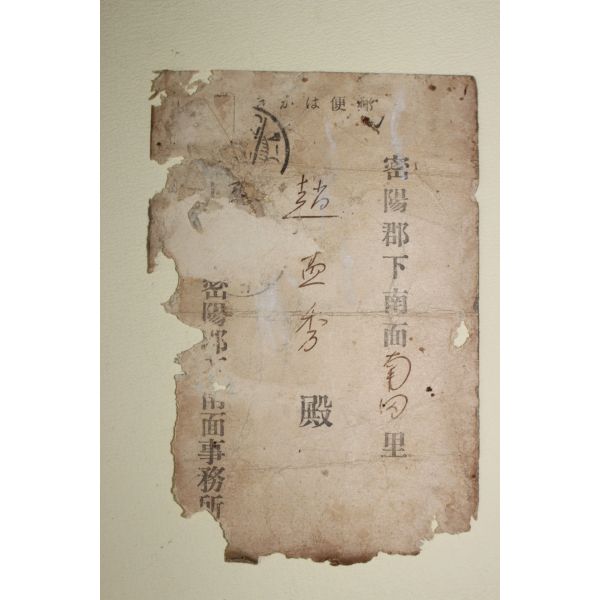 郵便はがき
密陽郡下南面南田里
趙 秀 殿
密陽郡下南面事務所